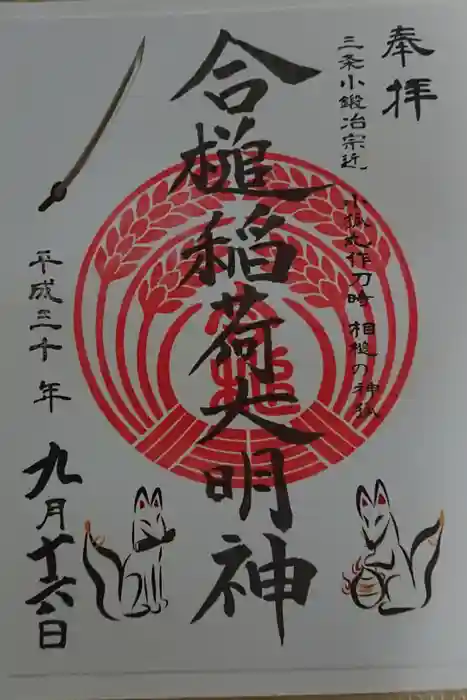 奉拝
三条小鍛冶宗近
小狐丸作刀時 相槌の神狐
合槌稲荷大明神
平成三十年
九月十六日